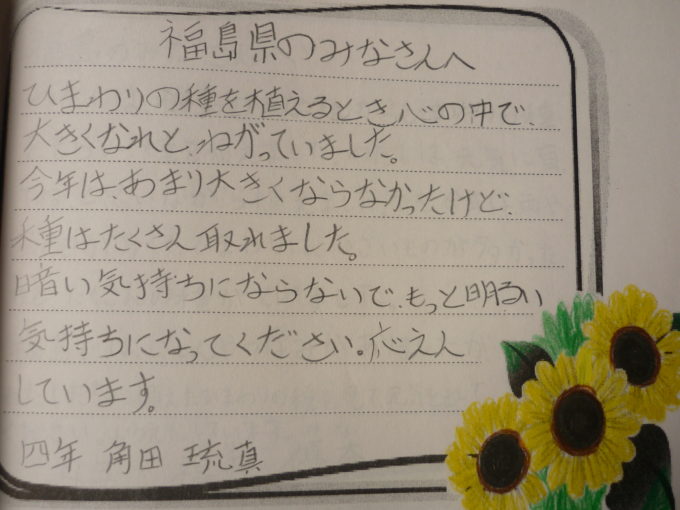 福島県のみなさんへ
ひまわりの種を植えるとき心の中で、
大きくなれと、ねがっていました。
今年は、あまり大きくならなかったけど、
種はたくさん取れました。
暗い気持ちにならないで、もっと明るい
気持ちになってください。応えん
しています。
四年 角田 琉真